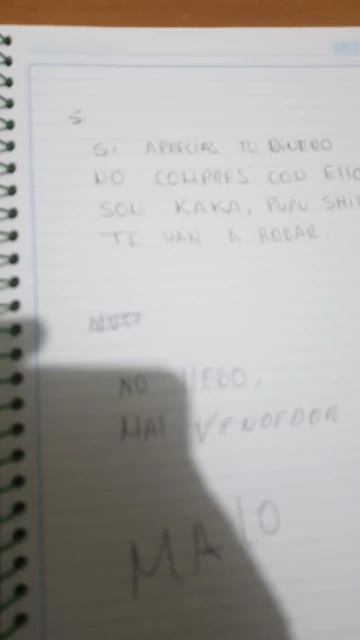 S.
SI APRECIAS TU DINERO
NO COMPRES CON ELLO
SON KAKA, PUPU SHI
TE VAN A ROBAR.
NO LLEGO,
MAL VENDEDOR
MALO